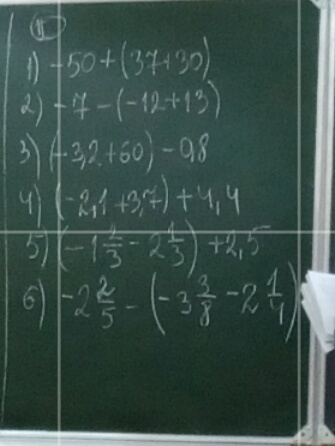 1) -50+(37+30)
2) -7-(-12+13)
3) (-3,2+60)-0,8
4) (-2,1+3,7)+4,4
5) (-1 2/3 - 2 1/3)+2,5
6) -2 2/5 - (-3 3/8 - 2 1/4)